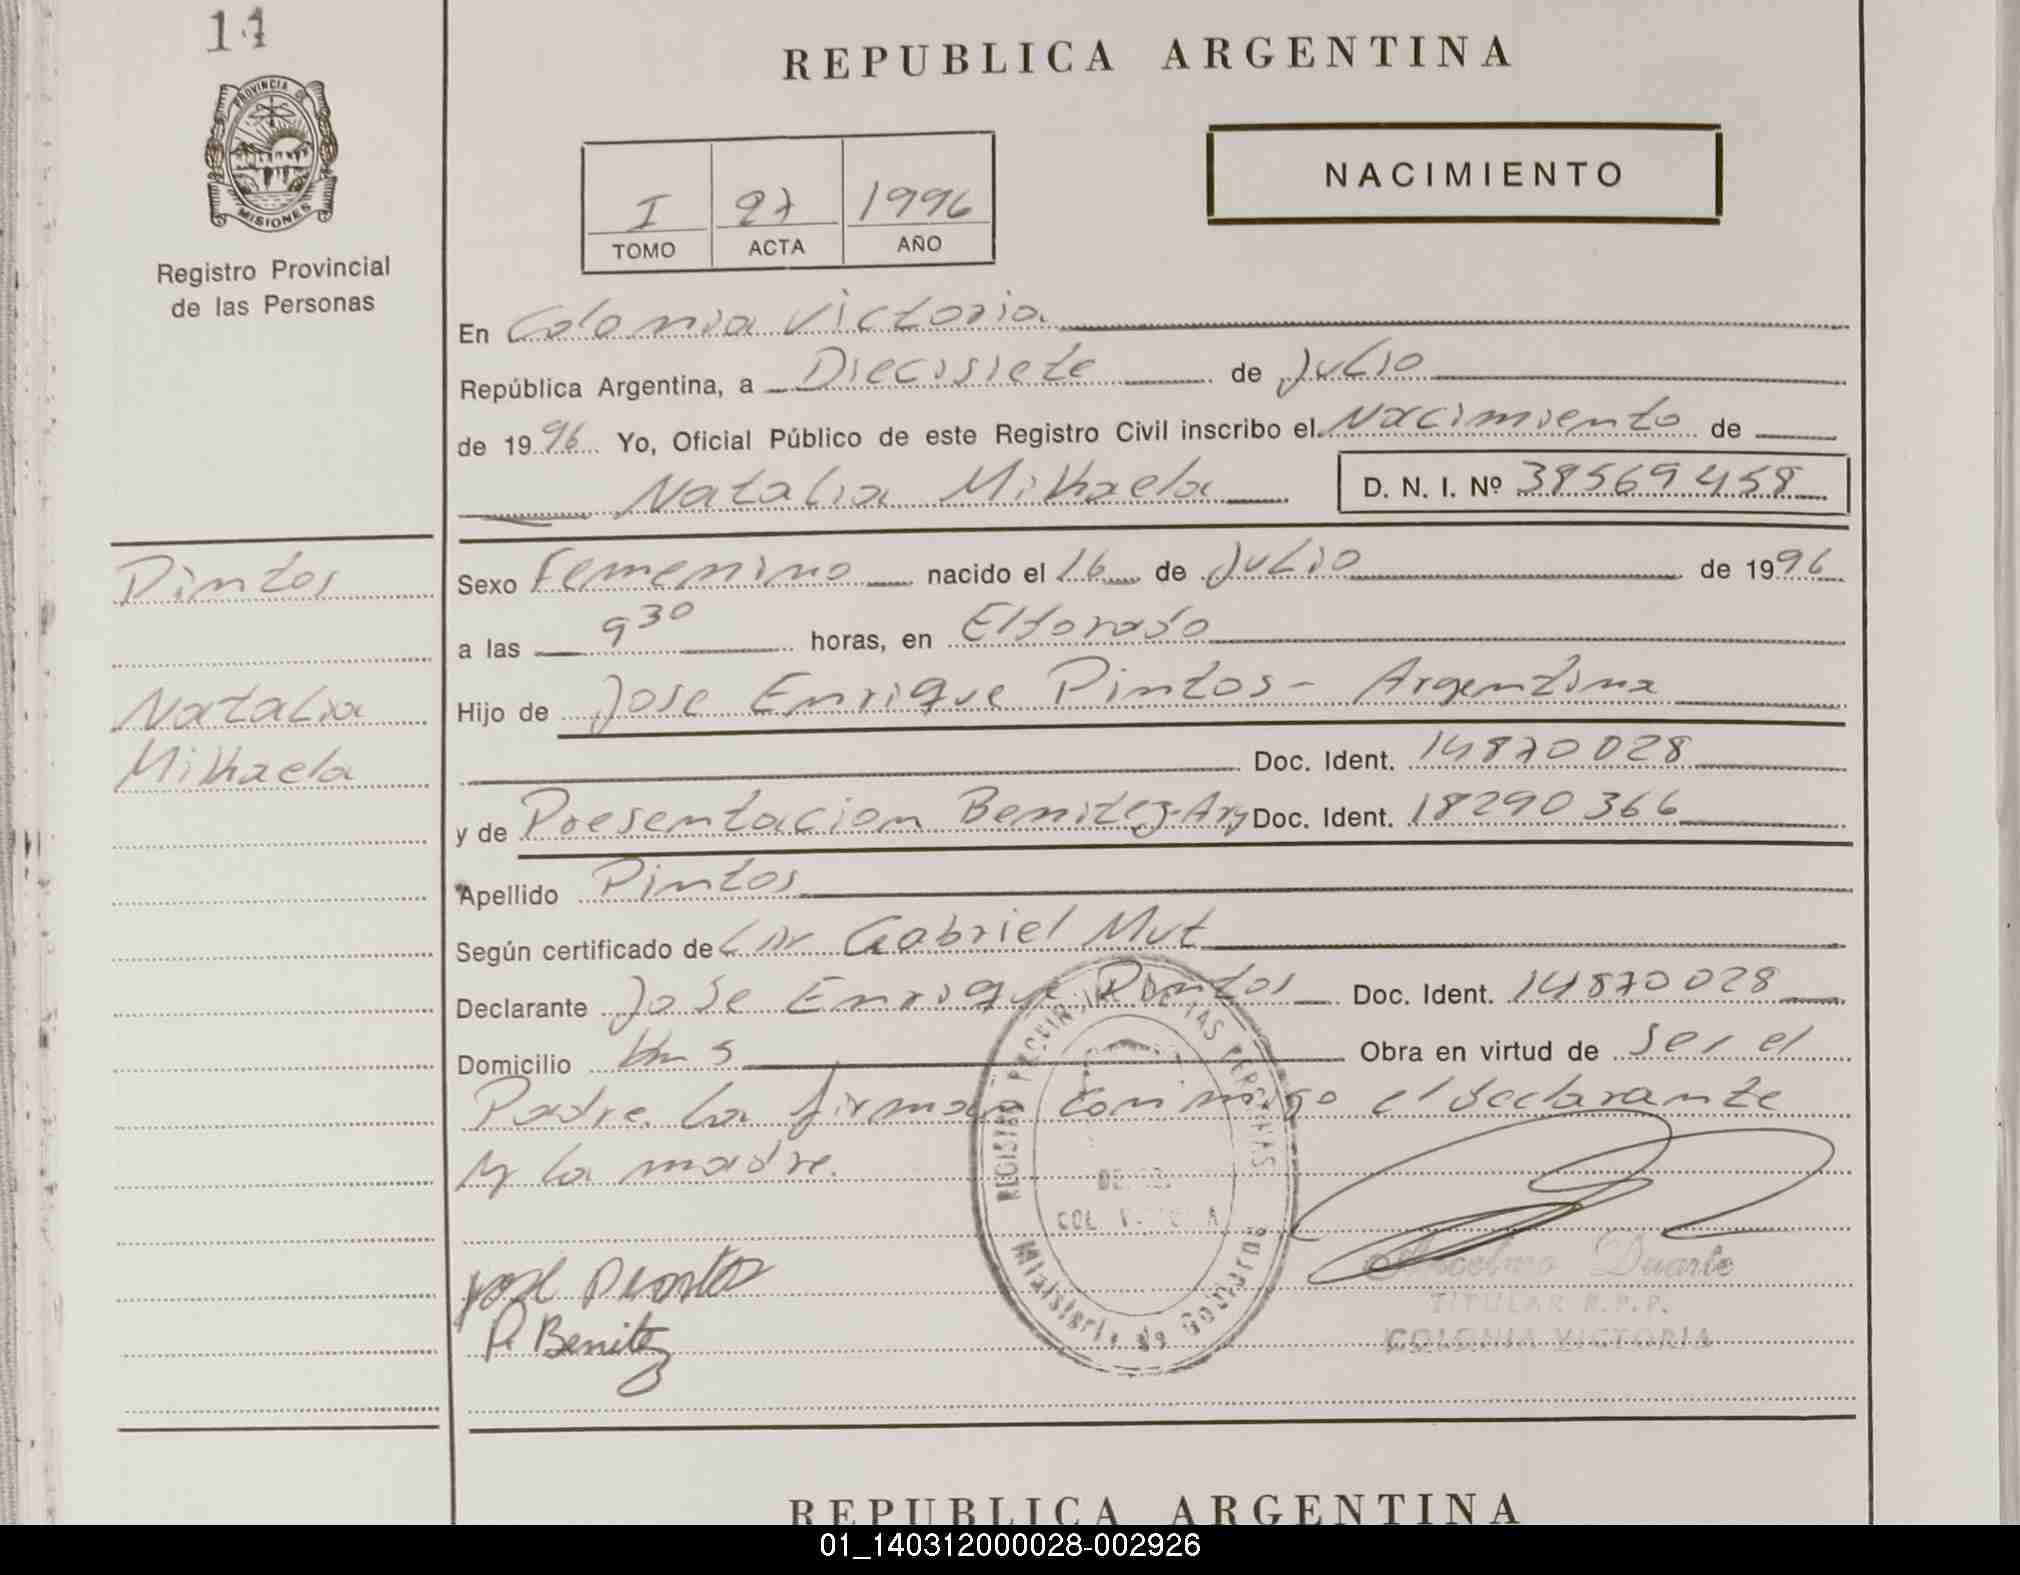 14
REPUBLICA ARGENTINA
PROVINCIA DE
MISIONES
Registro Provincial
de las Personas
NACIMIENTO
I 27 1996
TOMO ACTA AÑO
En Colonia Victoria
República Argentina, a Diecisiete de Julio
de 1996 Yo, Oficial Público de este Registro Civil inscribo el Nacimiento de
Natalia Mikhaela D. N. I. Nº 38569458
Pintos
Sexo Femenino nacido el 16 de Julio de 1996
a las 9 30 horas, en Eldorado
Natalia
Hijo de Jose Enrique Pintos - Argentina
Mikhaela
Doc. Ident. 14870028
y de Presentacion Benitez - Arg Doc. Ident. 18290366
Apellido Pintos
Según certificado de Gabriel Mut
Declarante Jose Enrique Pintos Doc. Ident. 14870028
Domicilio km 5 Obra en virtud de ser el
Padre. La firman conmigo el declarante
y la madre.
REGISTRO PROVINCIAL DE LAS PERSONAS
COL. VICTORIA
Ministerio de Gobierno
P. Benitez
Duarte
TITULAR R.P.P.
COLONIA VICTORIA
REPUBLICA ARGENTINA
01_140312000028-002926